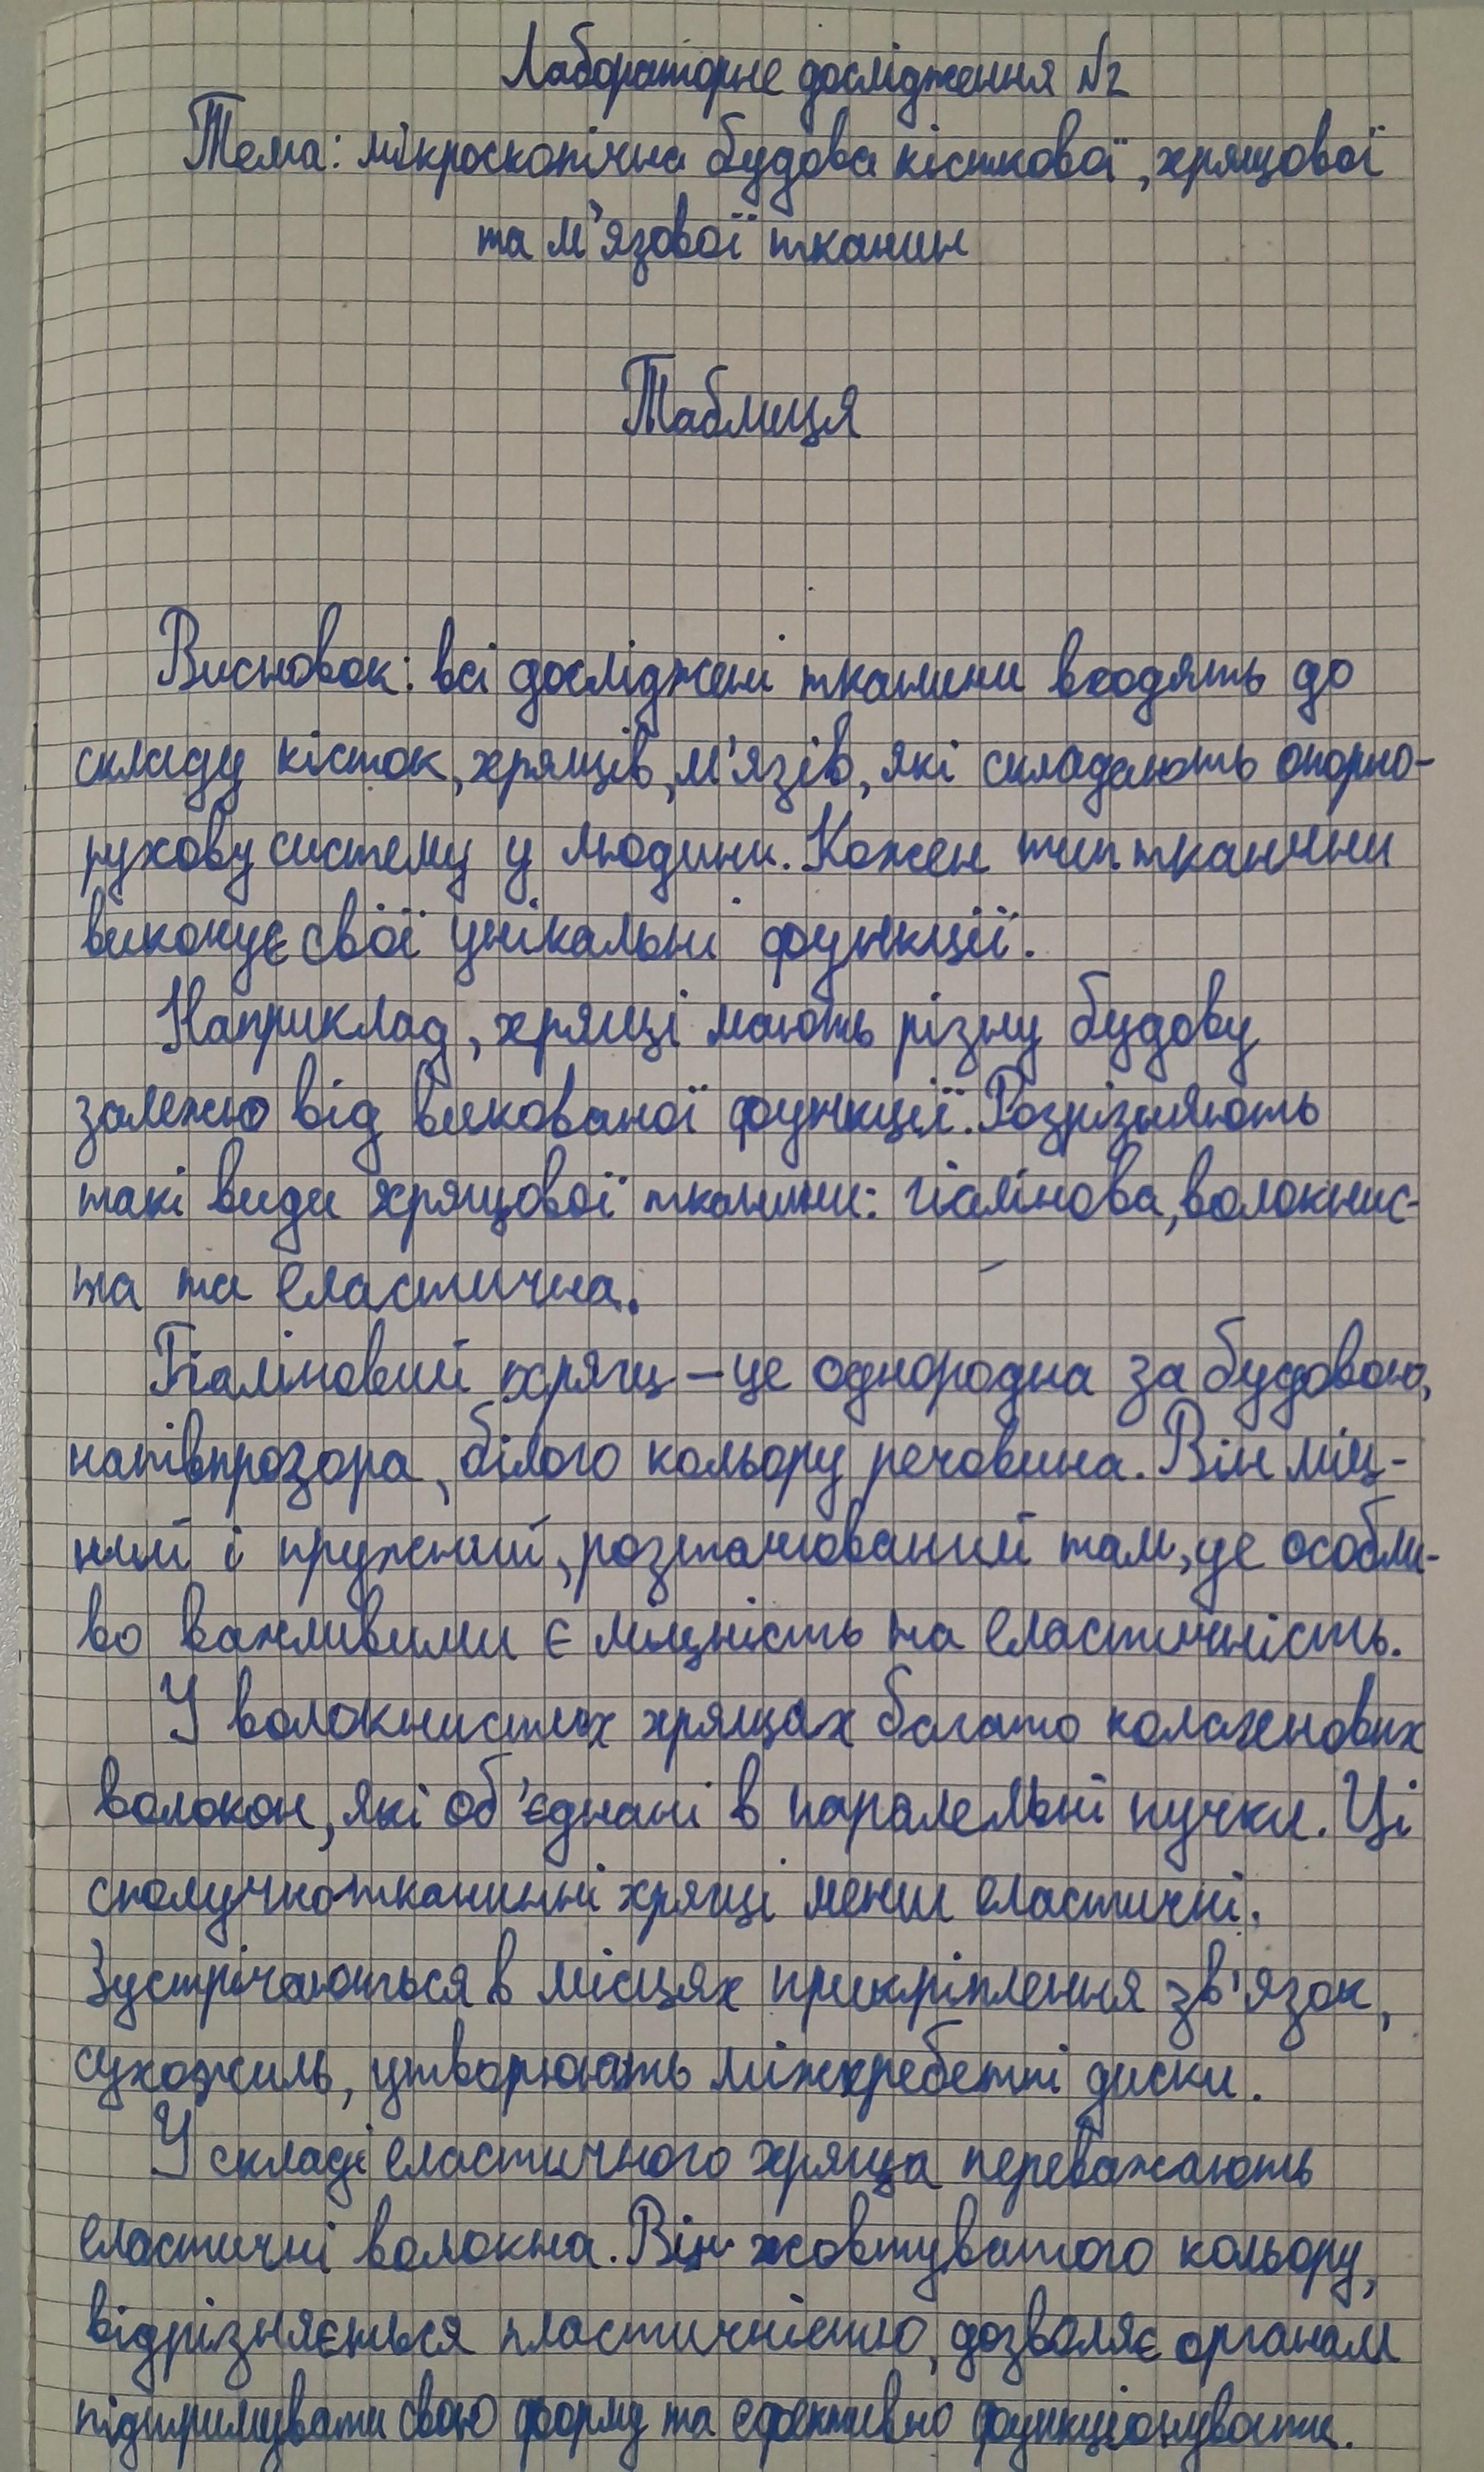 Лабораторне дослідження №2
Тема: мікроскопічна будова кісткової, хрящової
та м'язової тканин
Таблиця
Висновок: всі досліджені тканини входять до
складу кісток, хрящів, м'язів, які складають опорно-
рухову систему у людини. Кожен тип тканини
виконує свої унікальні функції.
Наприклад, хрящі мають різну будову
залежно від виконаної функції. Розрізняють
такі види хрящової тканини: гіалінова, волокнис-
та та еластична.
Гіаліновий хрящ – це однородна за будовою,
напівпрозора, білого кольору речовина. Він міц-
ний і пружний, розташований там, де особли-
во важливими є міцність та еластичність.
У волокнистих хрящах багато колагенових
волокон, які об'єднані в паралельні пучки. Ці
сполучнотканинні хрящі менш еластичні.
Зустрічаються в місцях прикріплення зв'язок,
сухожиль, утворюють міжхребетні диски.
У складі еластичного хряща переважають
еластичні волокна. Він жовтуватого кольору,
відрізняється пластичністю, дозволяє органам
підтримувати свою форму та ефективно функціонувати.